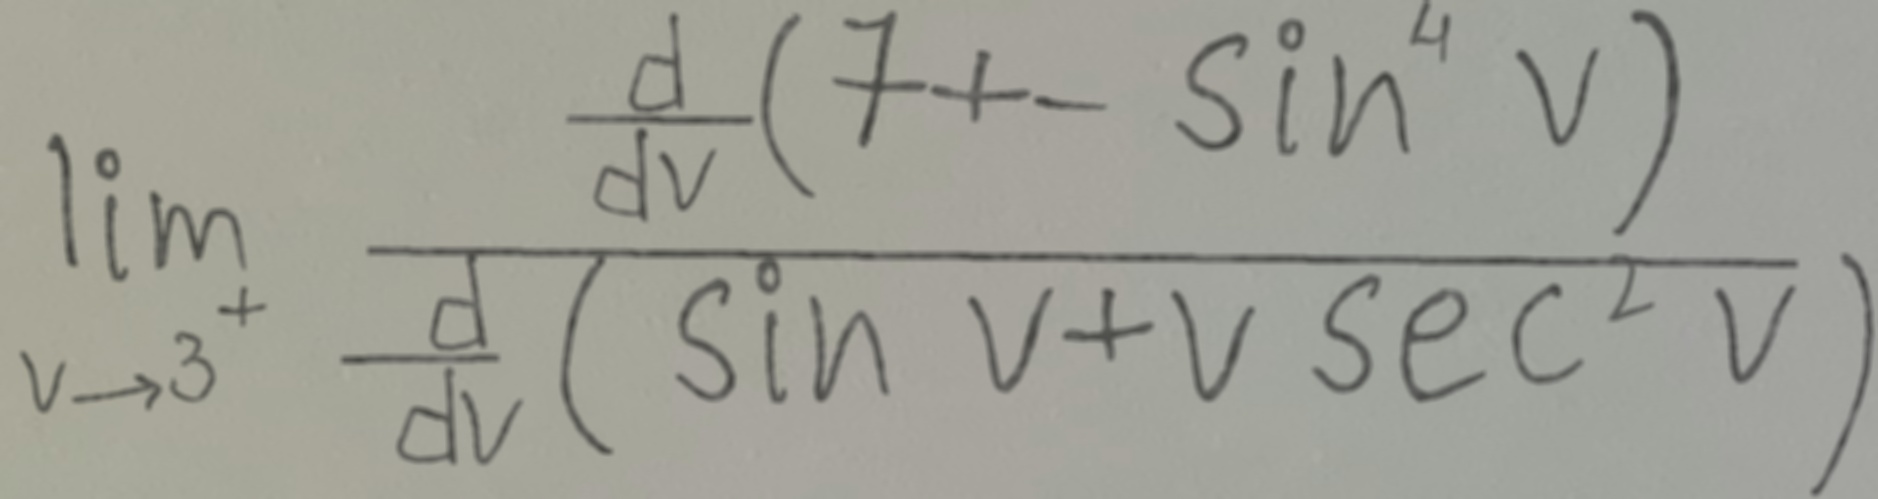 \lim_{v \to 3^+} \frac{\frac{d}{dv}(7 + - \sin^4 v)}{\frac{d}{dv}(\sin v + v \sec^2 v)}